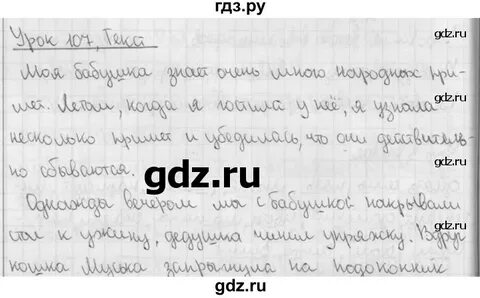 гдз.ру
Урок 107, Текст
Моя бабушка знает очень много народных при-
мет. Летом, когда я гостила у неё, я узнала
несколько примет и убедилась, что они действитель-
но сбываются.
gdz.ru
Однажды вечером мы с бабушкой накрывали
стол к ужину, дедушка чинил упряжку. Вдруг
кошка Муська запрыгнула на подоконник
gdz.ru
gdz.ru
gdz.ru
gdz.ru
gdz.ru
gdz.ru
gdz.ru
gdz.ru